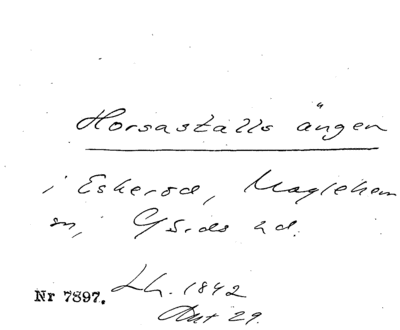 Horsastalls ängen
i Eskerod, Maglehem
sn, Gärds hd.
Nr 7897. Lh. 1842
Akt 29.